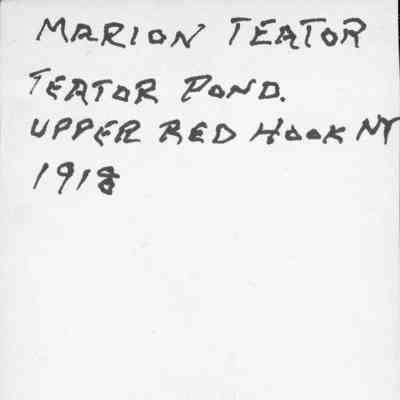 MARION TEATOR
TEATOR POND.
UPPER RED HOOK NY
1918